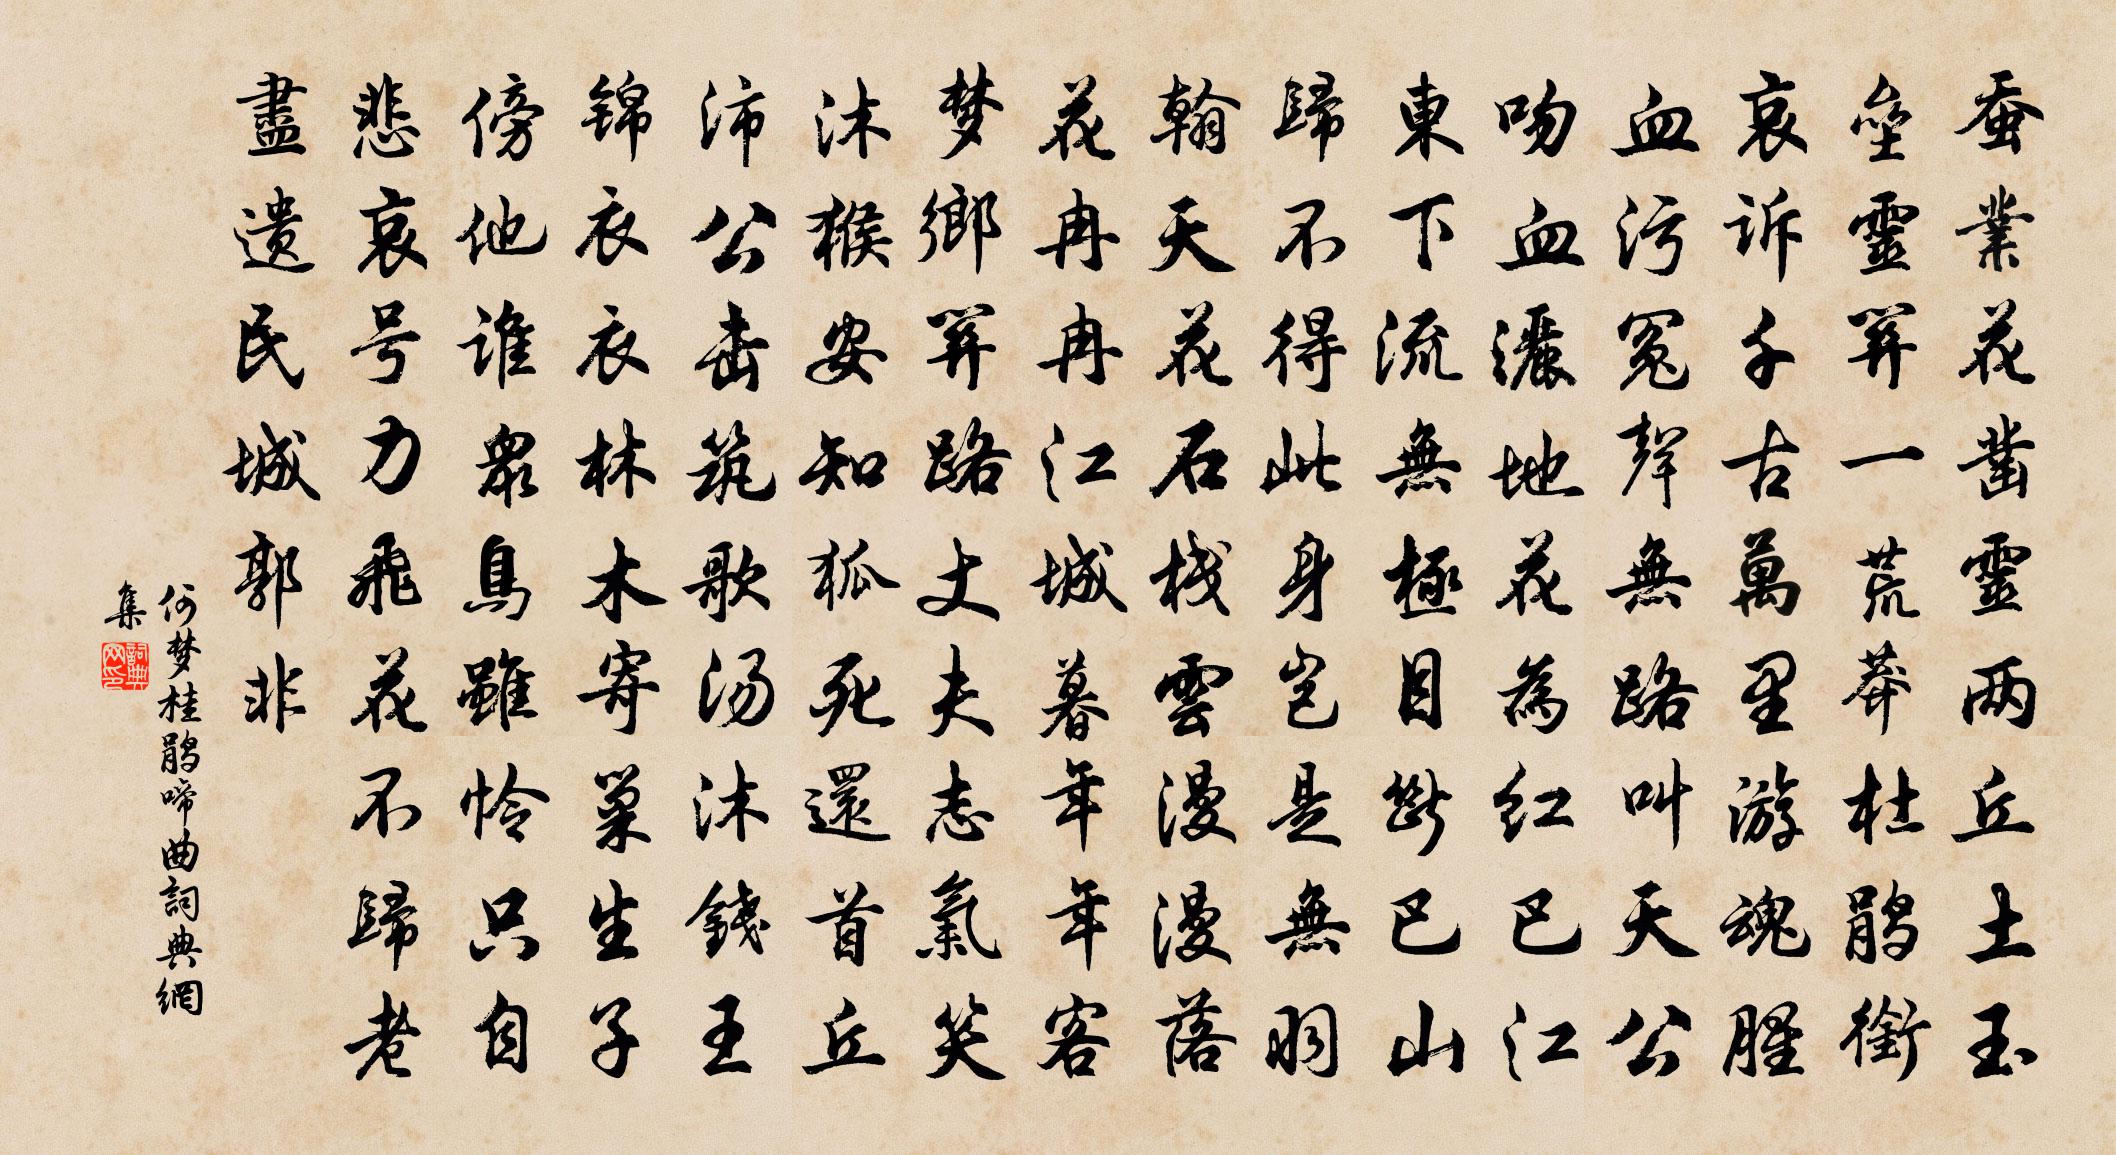 蚕業花凿靈两丘土玉
垒靈關一荒莽杜鹃銜
哀诉千古萬里游魂腥
血污冤聲無路叫天公
吻血灑地花為红已江
東下流無極目断巴山
歸不得此身岂是無羽
翰天花石栈雲漫漫落
花冉冉江城暮年年客
梦鄉關路丈夫志氣笑
沐猴安知狐死還首丘
沛公击筑歌汤沐錢王
锦衣衣林木寄巢生子
傍他谁眾鳥雖怜只自
悲哀号力飛花不歸老
盡遗民城郭非
何梦桂鹃啼曲詞典網
集
詞典网印